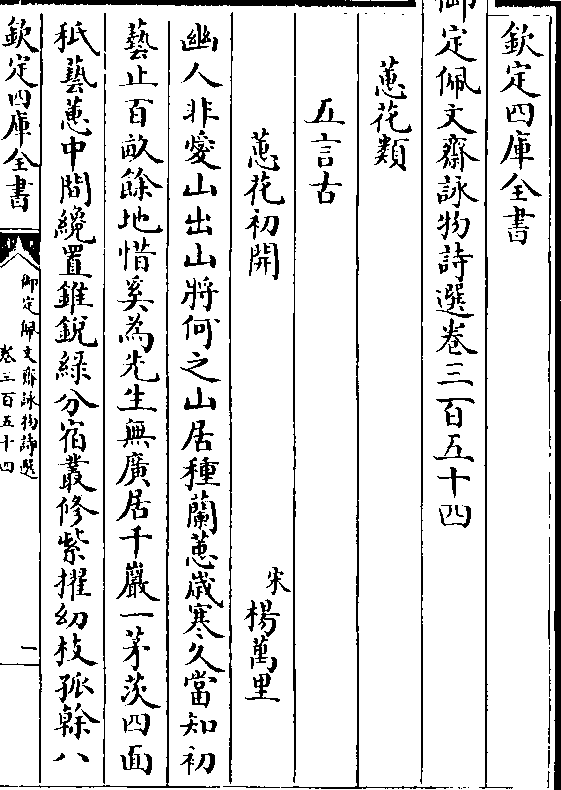 欽定四庫全書
御定佩文齋詠物詩選卷三百五十四
蕙花類
五言古
蕙花初開
宋
楊萬里
幽人非愛山出山將何之山居種蘭蕙歲寒久當知初
藝止百畝餘地惜奚為先生無廣居千巖一茅茨四面
秖藝蕙中間纔置錐銳綠分宿叢修紫擢幼枝孤榦八
欽定四庫全書
御定佩文齋詠物詩選
卷三百五十四
一